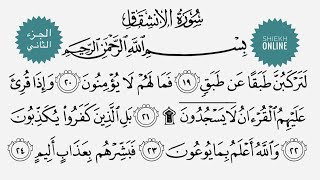 الجزء الثاني
سُورَةُ الْإِنْشِقَاقِ
SHIEKH ONLINE
بِسْمِ اللَّهِ الرَّحْمَٰنِ الرَّحِيمِ
لَتَرْكَبُنَّ طَبَقًا عَن طَبَقٍ ١٩ فَمَا لَهُمْ لَا يُؤْمِنُونَ ٢٠ وَإِذَا قُرِئَ
عَلَيْهِمُ الْقُرْءَانُ لَا يَسْجُدُونَ ۩ ٢١ بَلِ الَّذِينَ كَفَرُوا يُكَذِّبُونَ
٢٢ وَاللَّهُ أَعْلَمُ بِمَا يُوعُونَ ٢٣ فَبَشِّرْهُم بِعَذَابٍ أَلِيمٍ ٢٤